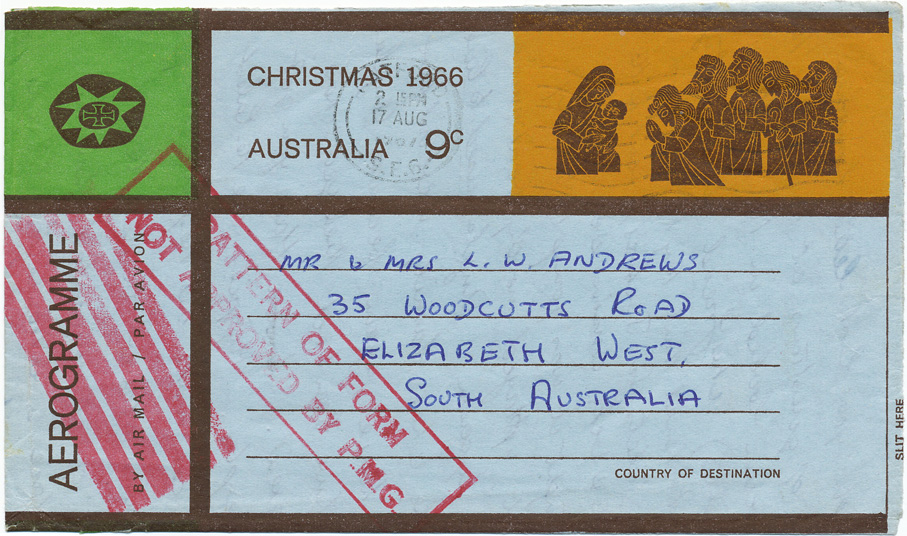 CHRISTMAS 1966
AUSTRALIA 9c
2 15PM
17 AUG
AEROGRAMME
BY AIR MAIL / PAR AVION
PATTERN OF FORM
NOT APPROVED BY P.M.G.
MR & MRS L. W. ANDREWS
35 WOODCUTTS ROAD
ELIZABETH WEST,
SOUTH AUSTRALIA
COUNTRY OF DESTINATION
SLIT HERE